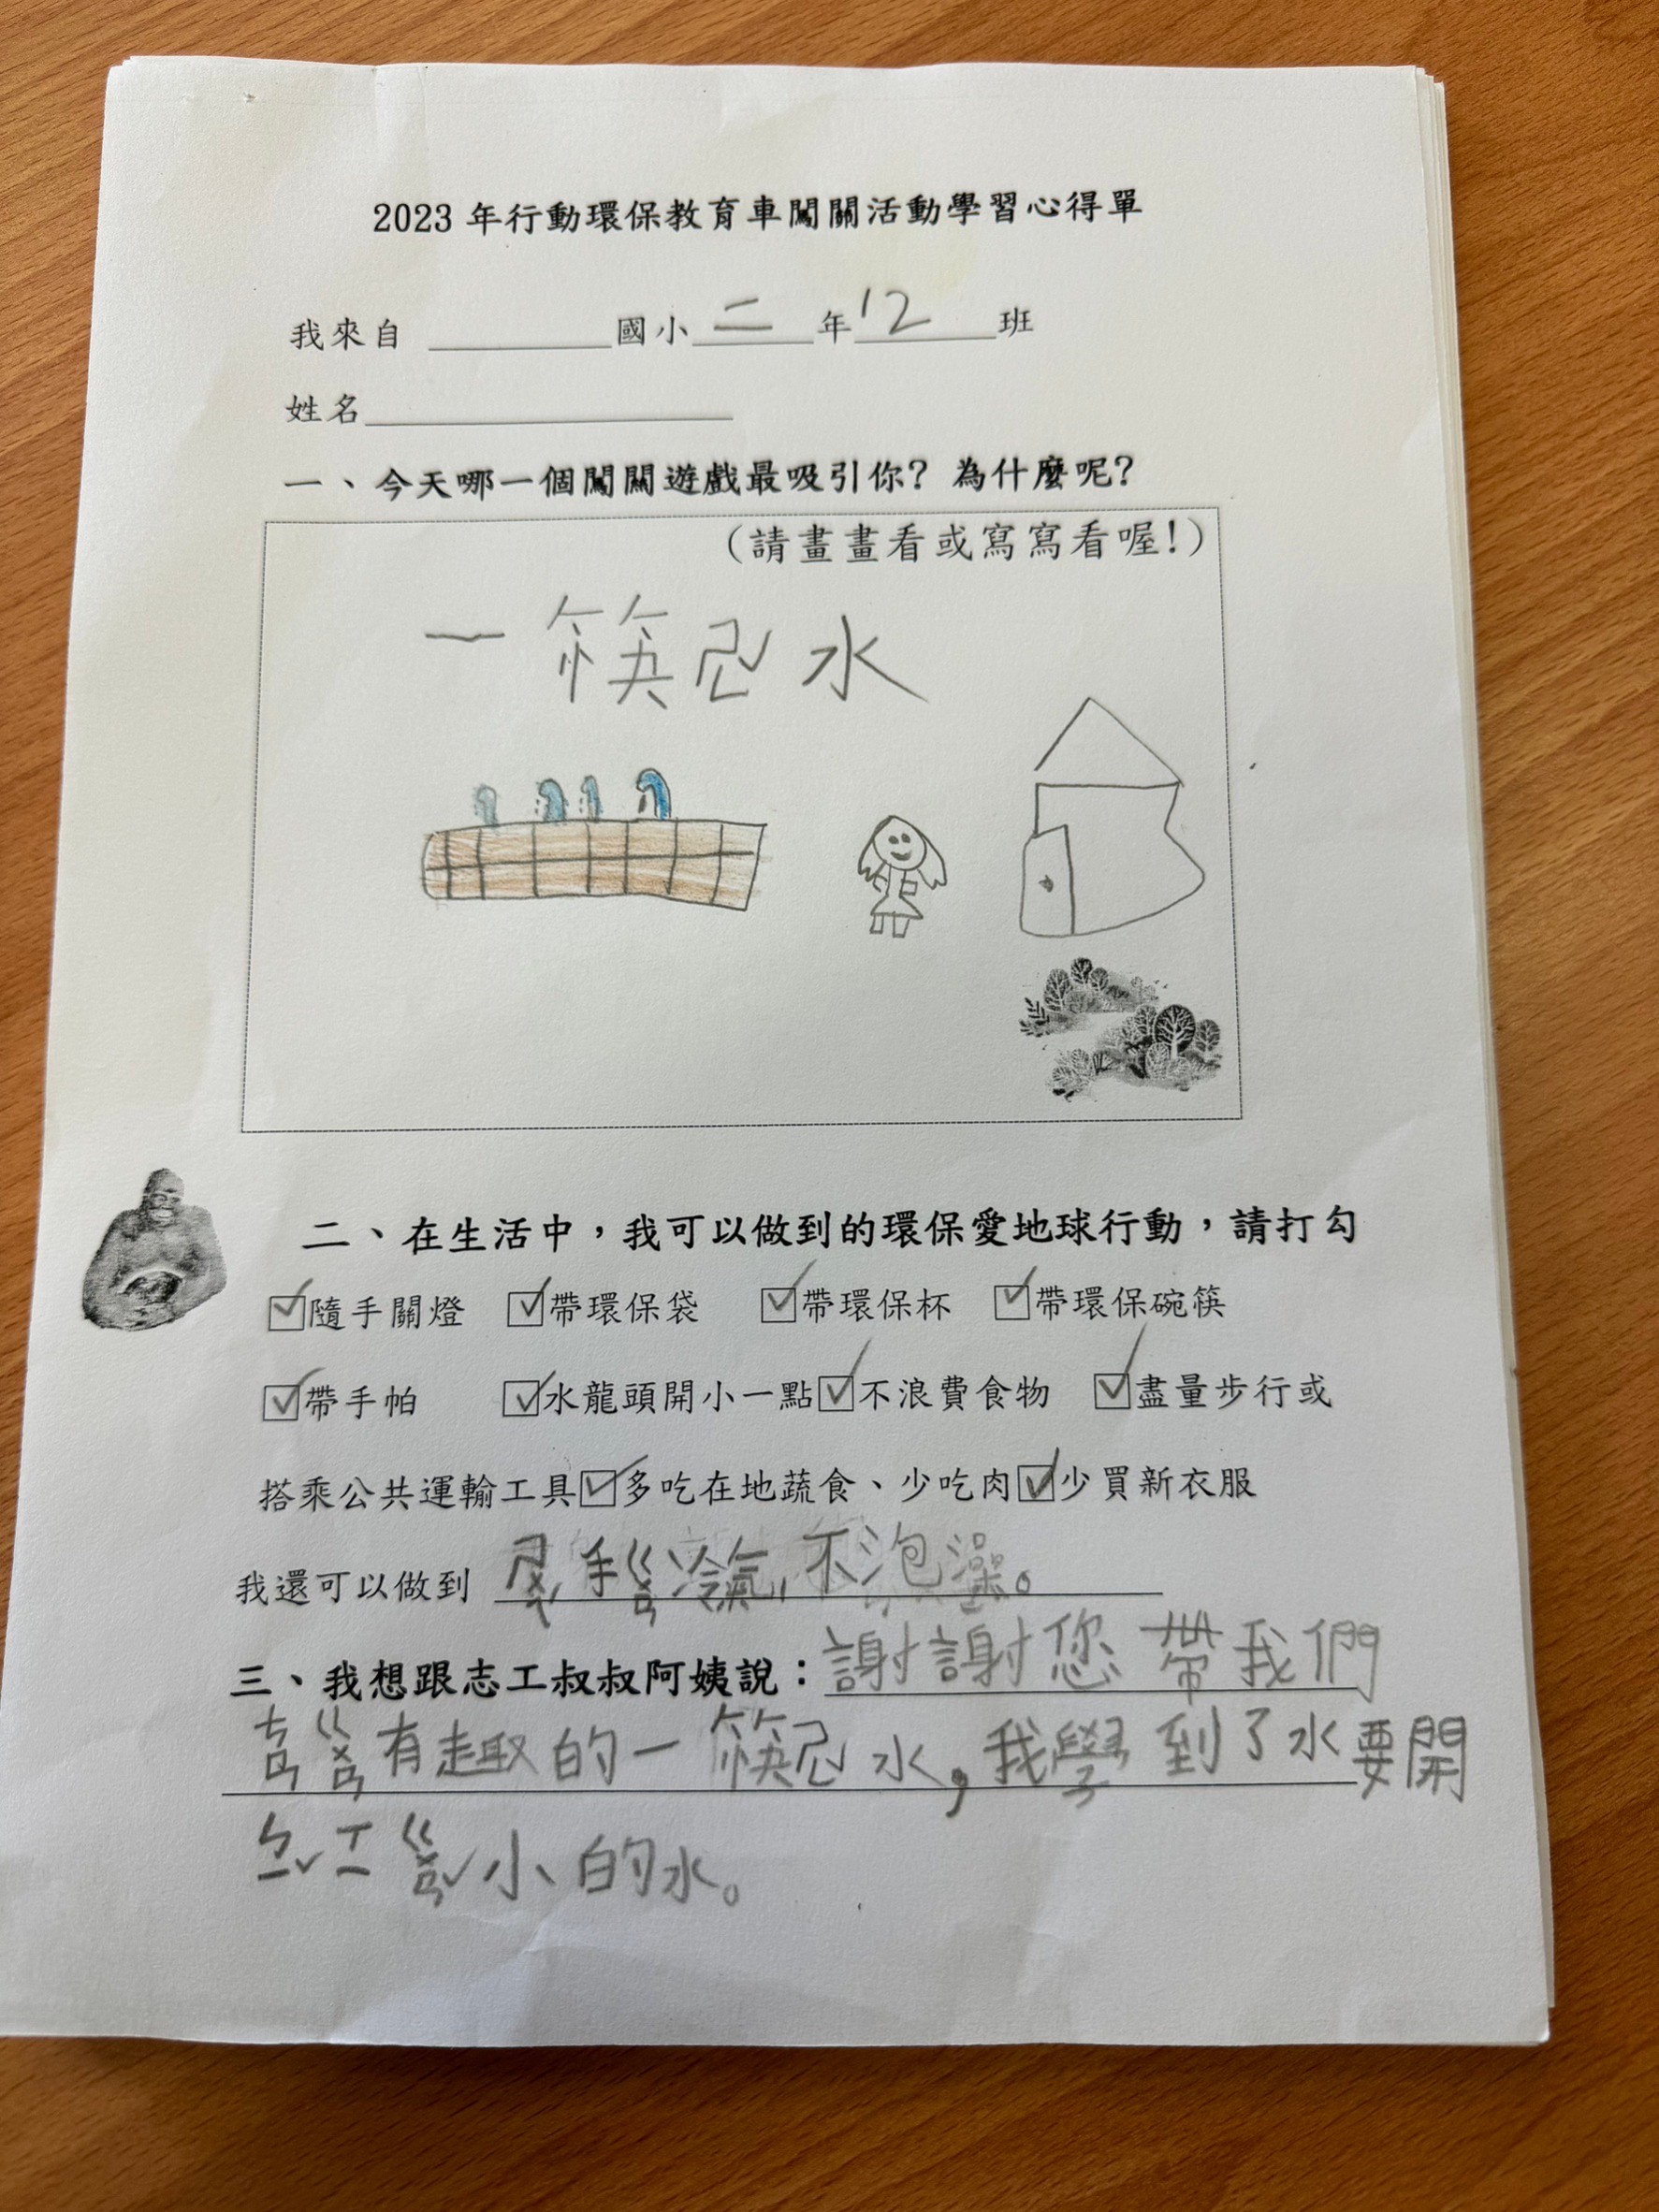 2023 年行動環保教育車闖關活動學習心得單
我來自 國小 二 年 12 班
姓名
一、今天哪一個闖關遊戲最吸引你？為什麼呢？
（請畫畫看或寫寫看喔！）
一筷ㄗㄧˇ水
二、在生活中，我可以做到的環保愛地球行動，請打勾
☑隨手關燈 ☑帶環保袋 ☑帶環保杯 ☑帶環保碗筷
☑帶手帕 ☑水龍頭開小一點☑不浪費食物 ☑盡量步行或
搭乘公共運輸工具☑多吃在地蔬食、少吃肉☑少買新衣服
我還可以做到 手ㄍㄨㄢ冷氣，不泡澡。
三、我想跟志工叔叔阿姨說：謝謝您帶我們
ㄘㄢㄍㄨㄢ有趣的一筷ㄗ水，我學到了水要開
ㄅㄧˇㄒㄧ ㄍㄨㄢˇ小的水。